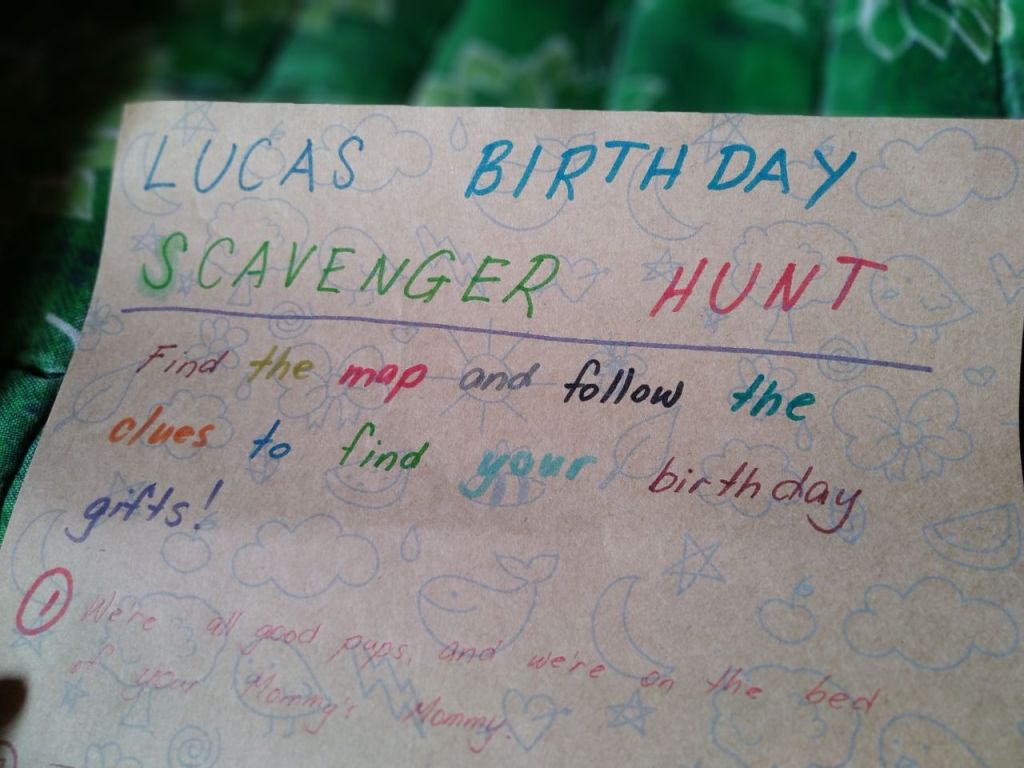 LUCAS BIRTHDAY
SCAVENGER HUNT
Find the map and follow the
clues to find your birthday
gifts!
1 We're all good pups, and we're on the bed
of your Mommy's Mommy.